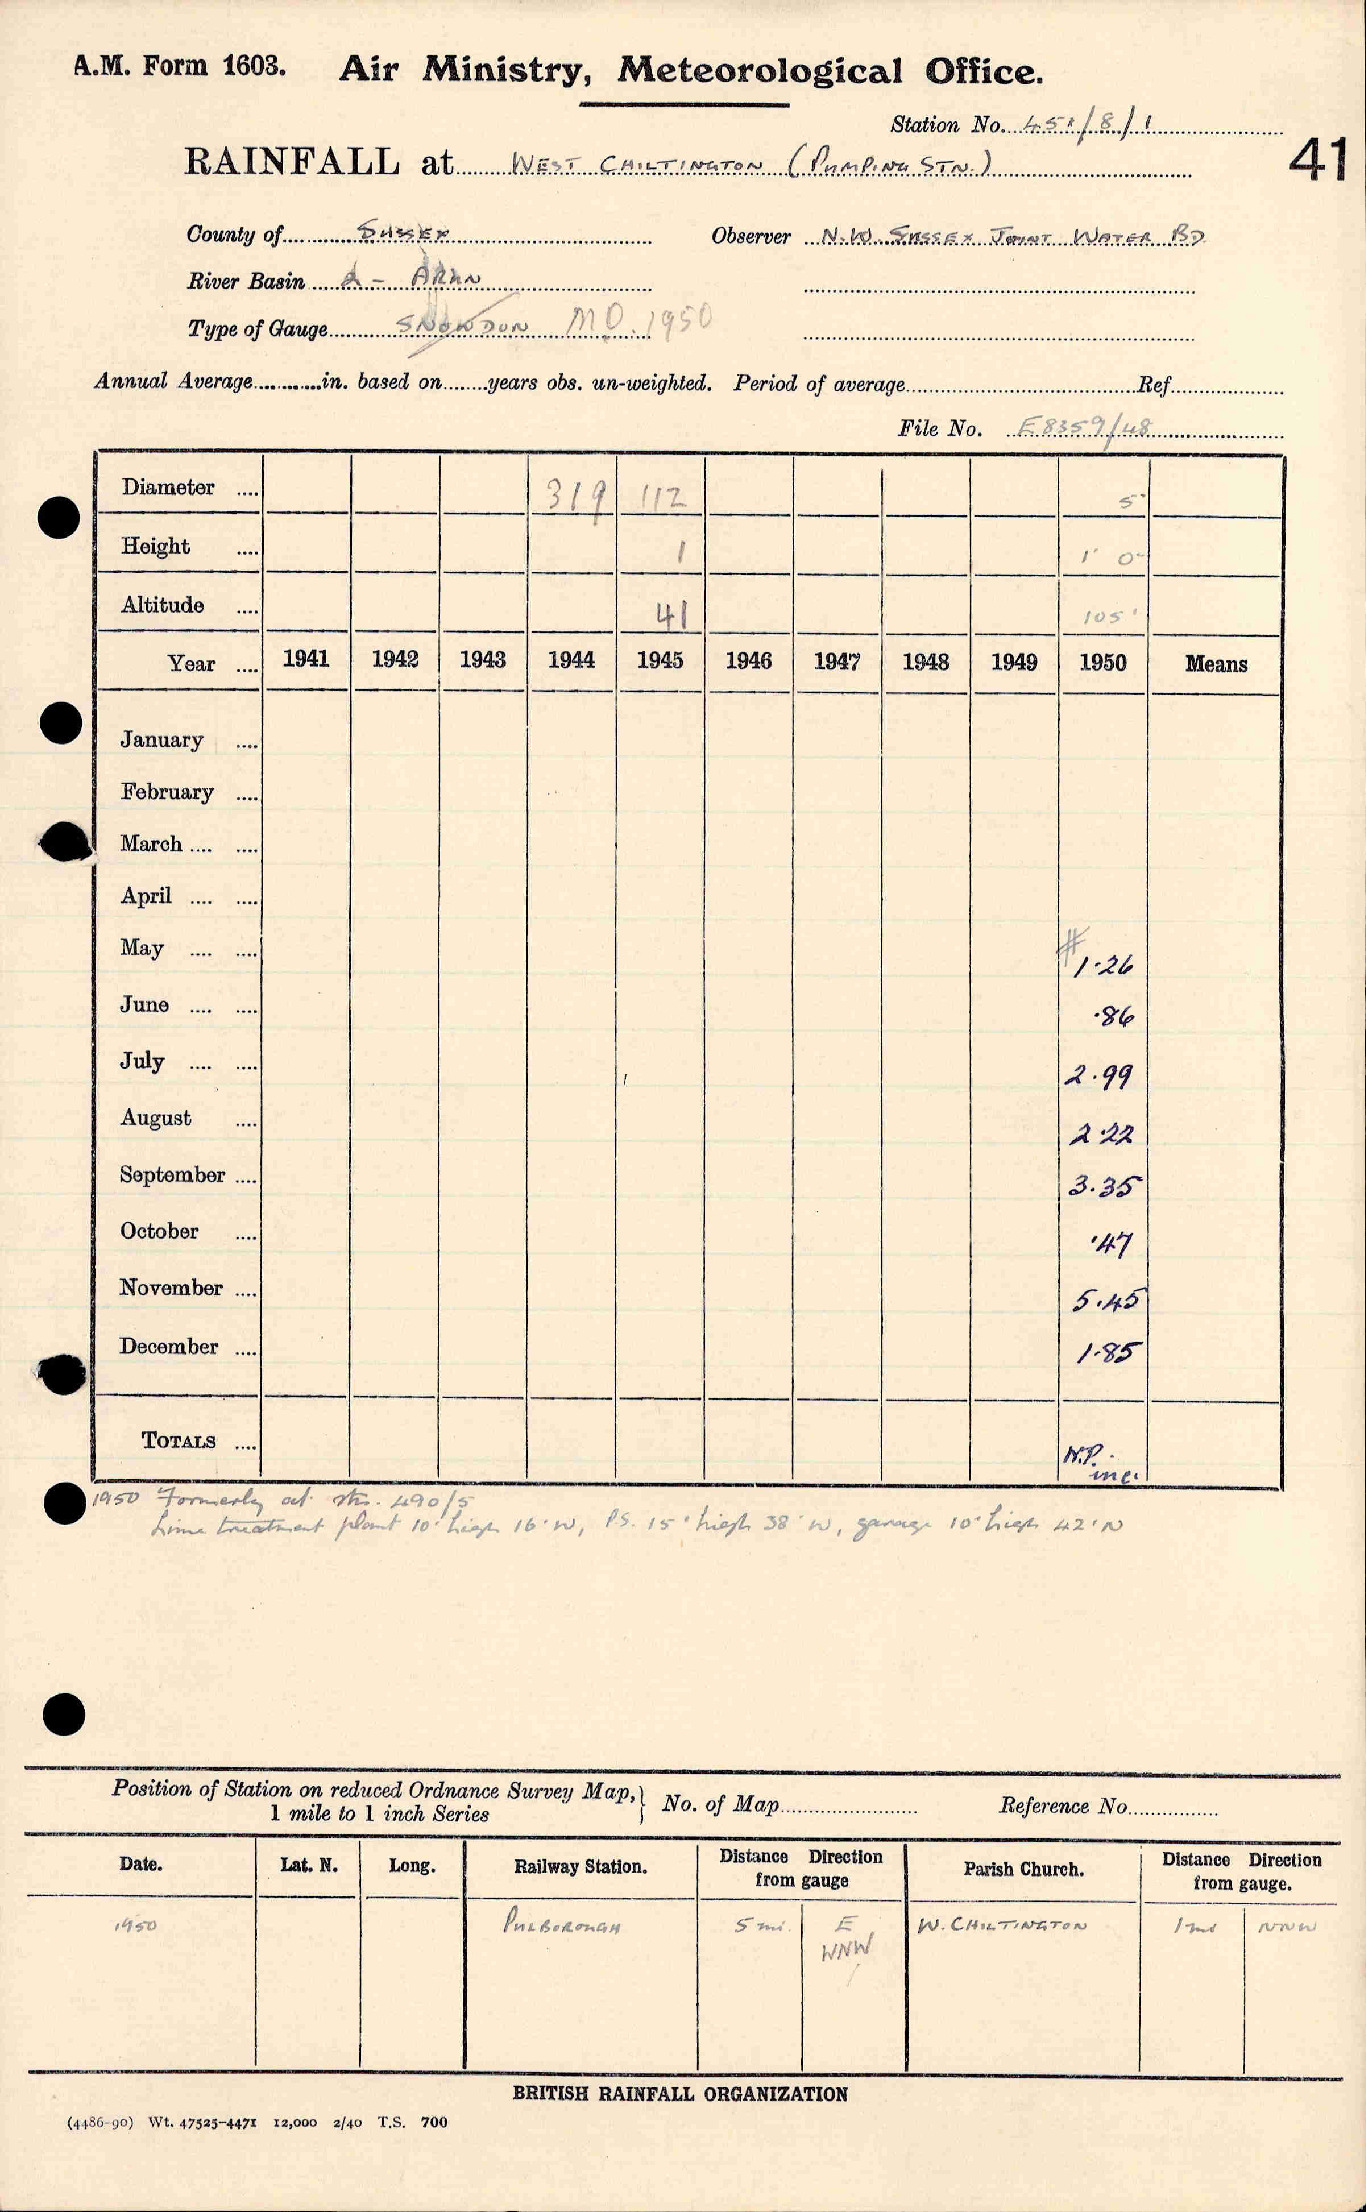 A.M. Form 1603. Air Ministry, Meteorological Office.
Station No. 451/8/1
41
RAINFALL at WEST CHILTINGTON (PUMPING STN.)
County of SUSSEX Observer N.W. SUSSEX JOINT WATER BD
River Basin - ARUN
Type of Gauge SNOWDON MO. 1950
Annual Average in. based on years obs. un-weighted. Period of average Ref.
File No. E8359/48
Diameter .... 319 112 5"
Height .... 1 1' 0"
Altitude .... 41 105'
Year .... 1941 1942 1943 1944 1945 1946 1947 1948 1949 1950 Means
January ....
February ....
March .... ....
April .... ....
May .... .... # 1.26
June .... .... .86
July .... .... 2.99
August .... 2.22
September .... 3.35
October .... .47
November .... 5.45
December .... 1.85
TOTALS .... N.P. inc.
1950 Formerly at stn. 490/5
Lime treatment plant 10' high 16' W, P.S. 15' high 38' W, garage 10' high 42' N
Position of Station on reduced Ordnance Survey Map, } No. of Map Reference No.
1 mile to 1 inch Series
Date. Lat. N. Long. Railway Station. Distance Direction from gauge Parish Church. Distance Direction from gauge.
1950 PULBOROUGH 5 mi. E W. CHILTINGTON 1 mi NNW
WNW
BRITISH RAINFALL ORGANIZATION
(4486-90) Wt. 47525-4471 12,000 2/40 T.S. 700